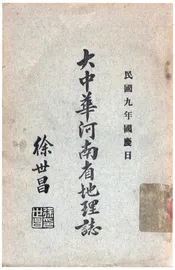 民國九年國慶日
大中華河南省地理誌
徐世昌